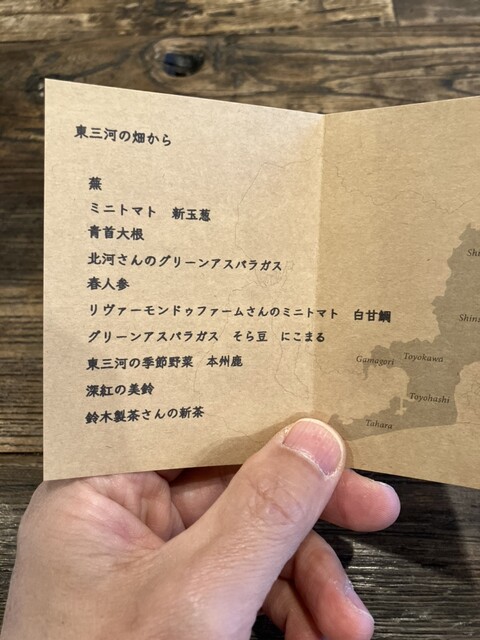 東三河の畑から
蕪
ミニトマト 新玉葱
青首大根
北河さんのグリーンアスパラガス
春人参
リヴァーモンドゥファームさんのミニトマト 白甘鯛
グリーンアスパラガス そら豆 にこまる
東三河の季節野菜 本州鹿
深紅の美鈴
鈴木製茶さんの新茶
Gamagori
Toyokawa
Toyohashi
Tahara